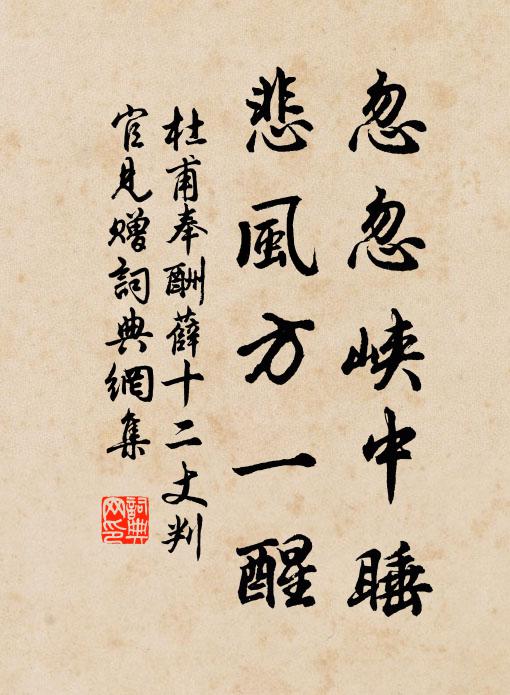 忽忽峽中睡
悲風方一醒
杜甫奉酬薛十二丈判
官見贈詞典網集
詞典
网印